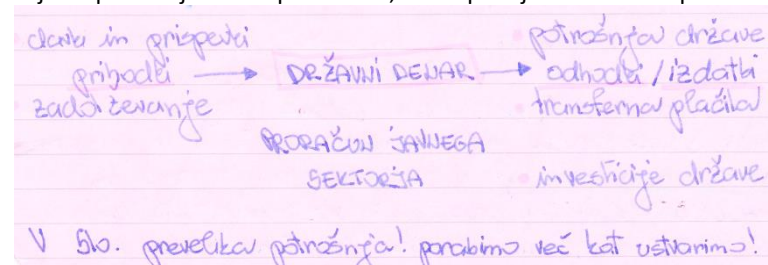 davki in prispevki potrošnja države
prihodki → DRŽAVNI DENAR → odhodki / izdatki
zadolževanje transferna plačila
PRORAČUN JAVNEGA
SEKTORJA investicije države
V Slo. prevelika potrošnja! porabimo več kot ustvarimo!